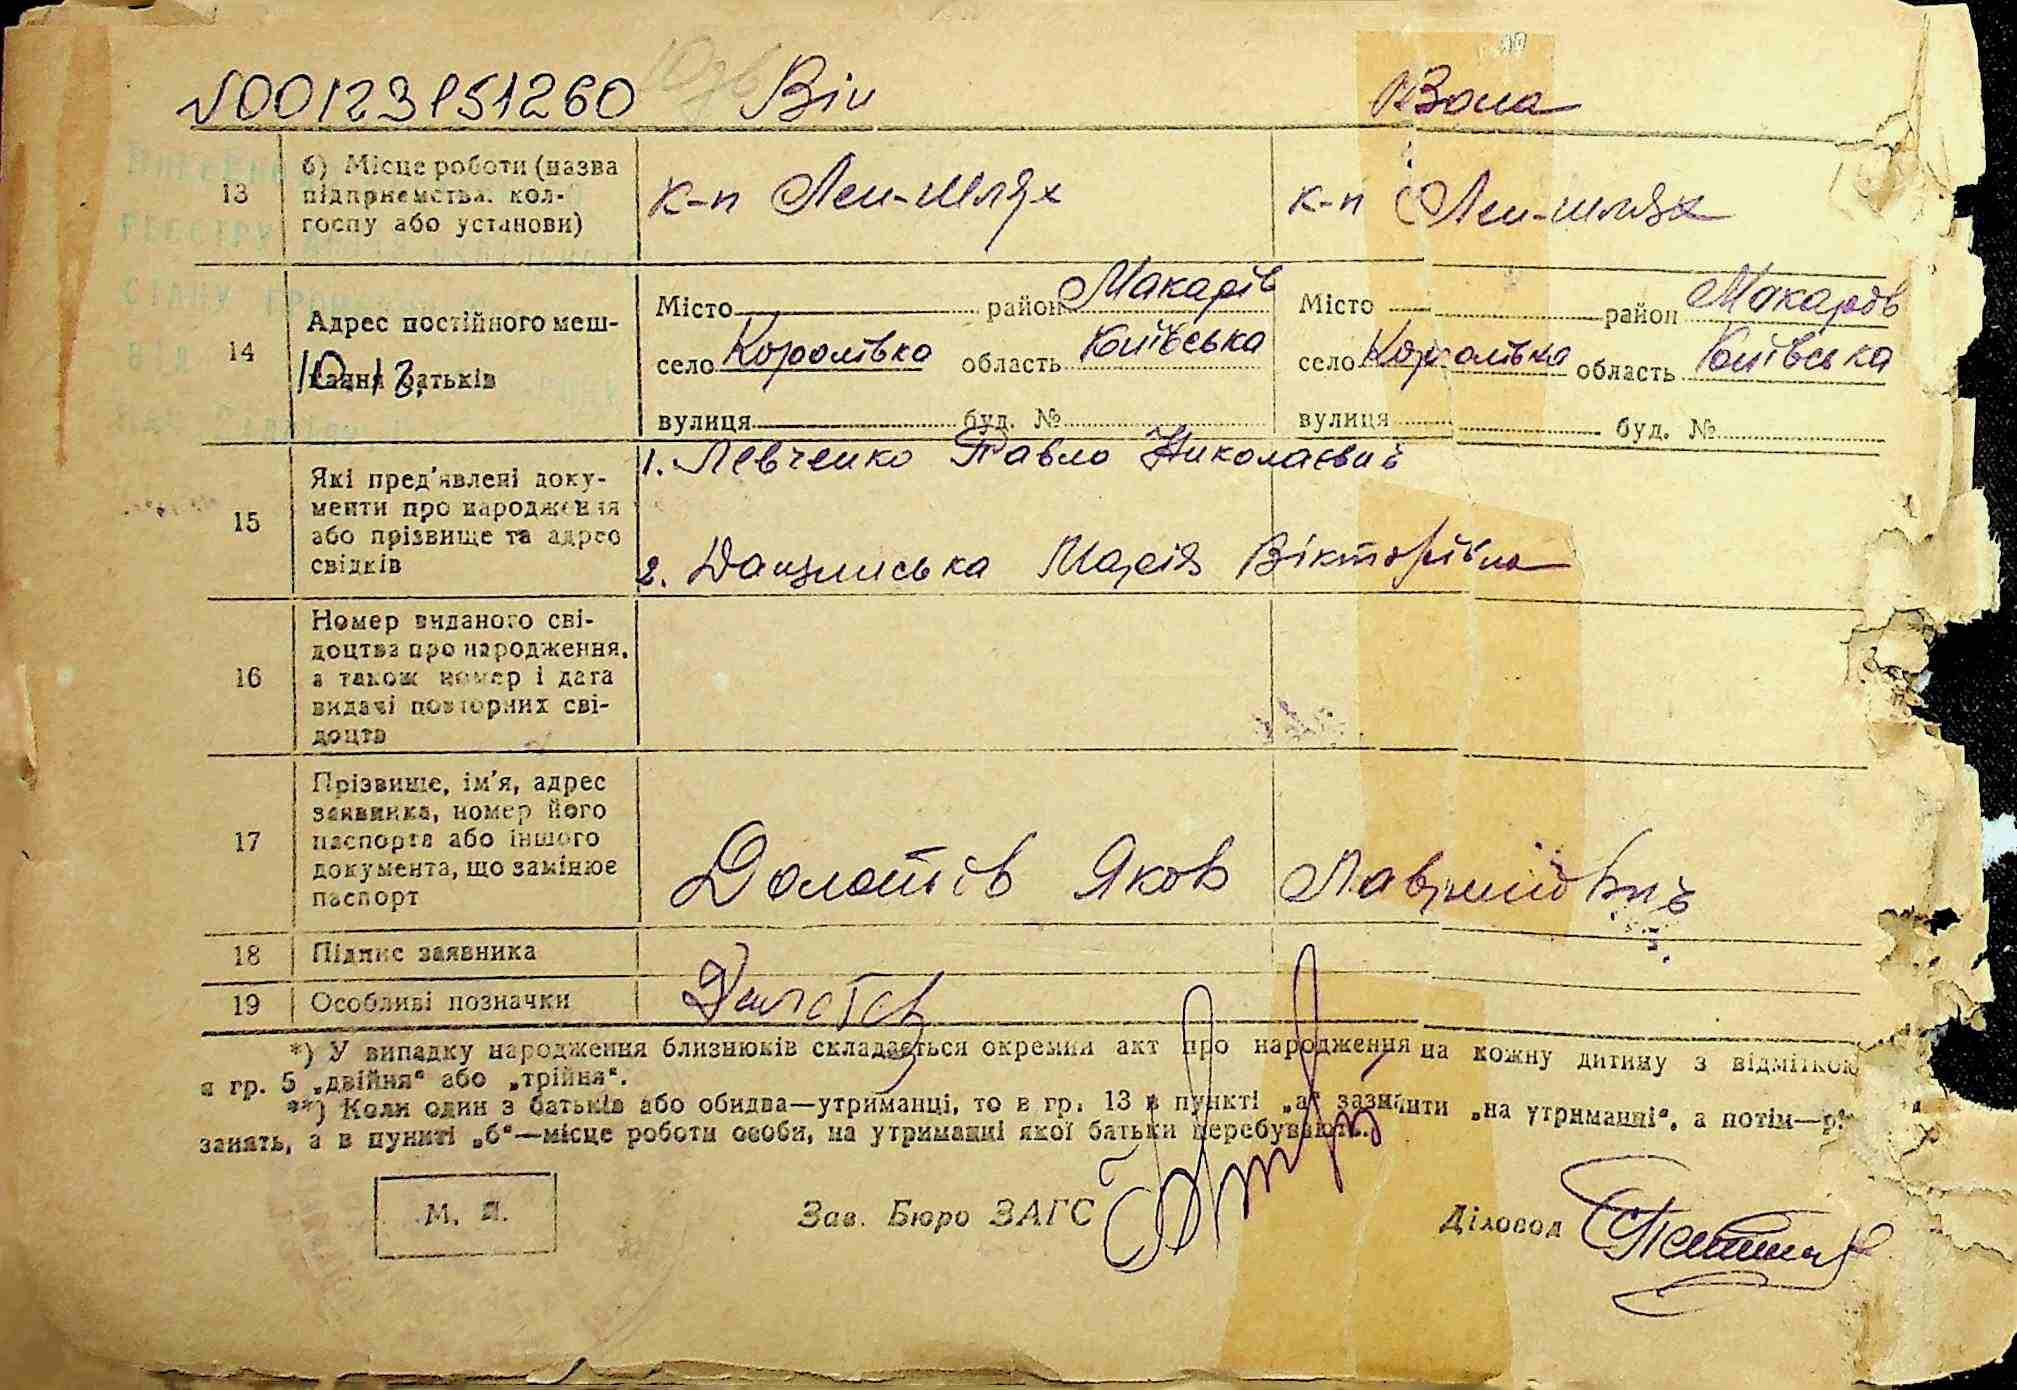 №00123151260 Він Вона
13 б) Місце роботи (назва
підприємства, кол-
госпу або установи)
к-п Лен-шлях к-п Лен-шлях
14 Адрес постійного меш-
кання батьків
Місто район Макарів Місто район Макарів
село Королівка область Київська село Королівка область Київська
вулиця буд. № вулиця буд. №
15 Які пред'явлені доку-
менти про народження
або прізвище та адрес
свідків
1. Левченко Павло Николаєвич
2. Марія Вікторівна
16 Номер виданого сві-
доцтва про народження,
а також номер і дата
видачі повторних сві-
доцтв
17 Прізвище, ім'я, адрес
заявника, номер його
паспорта або іншого
документа, що замінює
паспорт
Долотов Яков
18 Підпис заявника
19 Особливі позначки
*) У випадку народження близнюків складається окремий акт про народження на кожну дитину з відміткою
в гр. 5 „двійня“ або „трійня“.
**) Коли один з батьків або обидва—утриманці, то в гр. 13 в пункті „а“ зазначити „на утриманні“, а потім—
занять, а в пункті „б“—місце роботи особи, на утриманні якої батьки перебувають.
М. П. Зав. Бюро ЗАГС Діловод